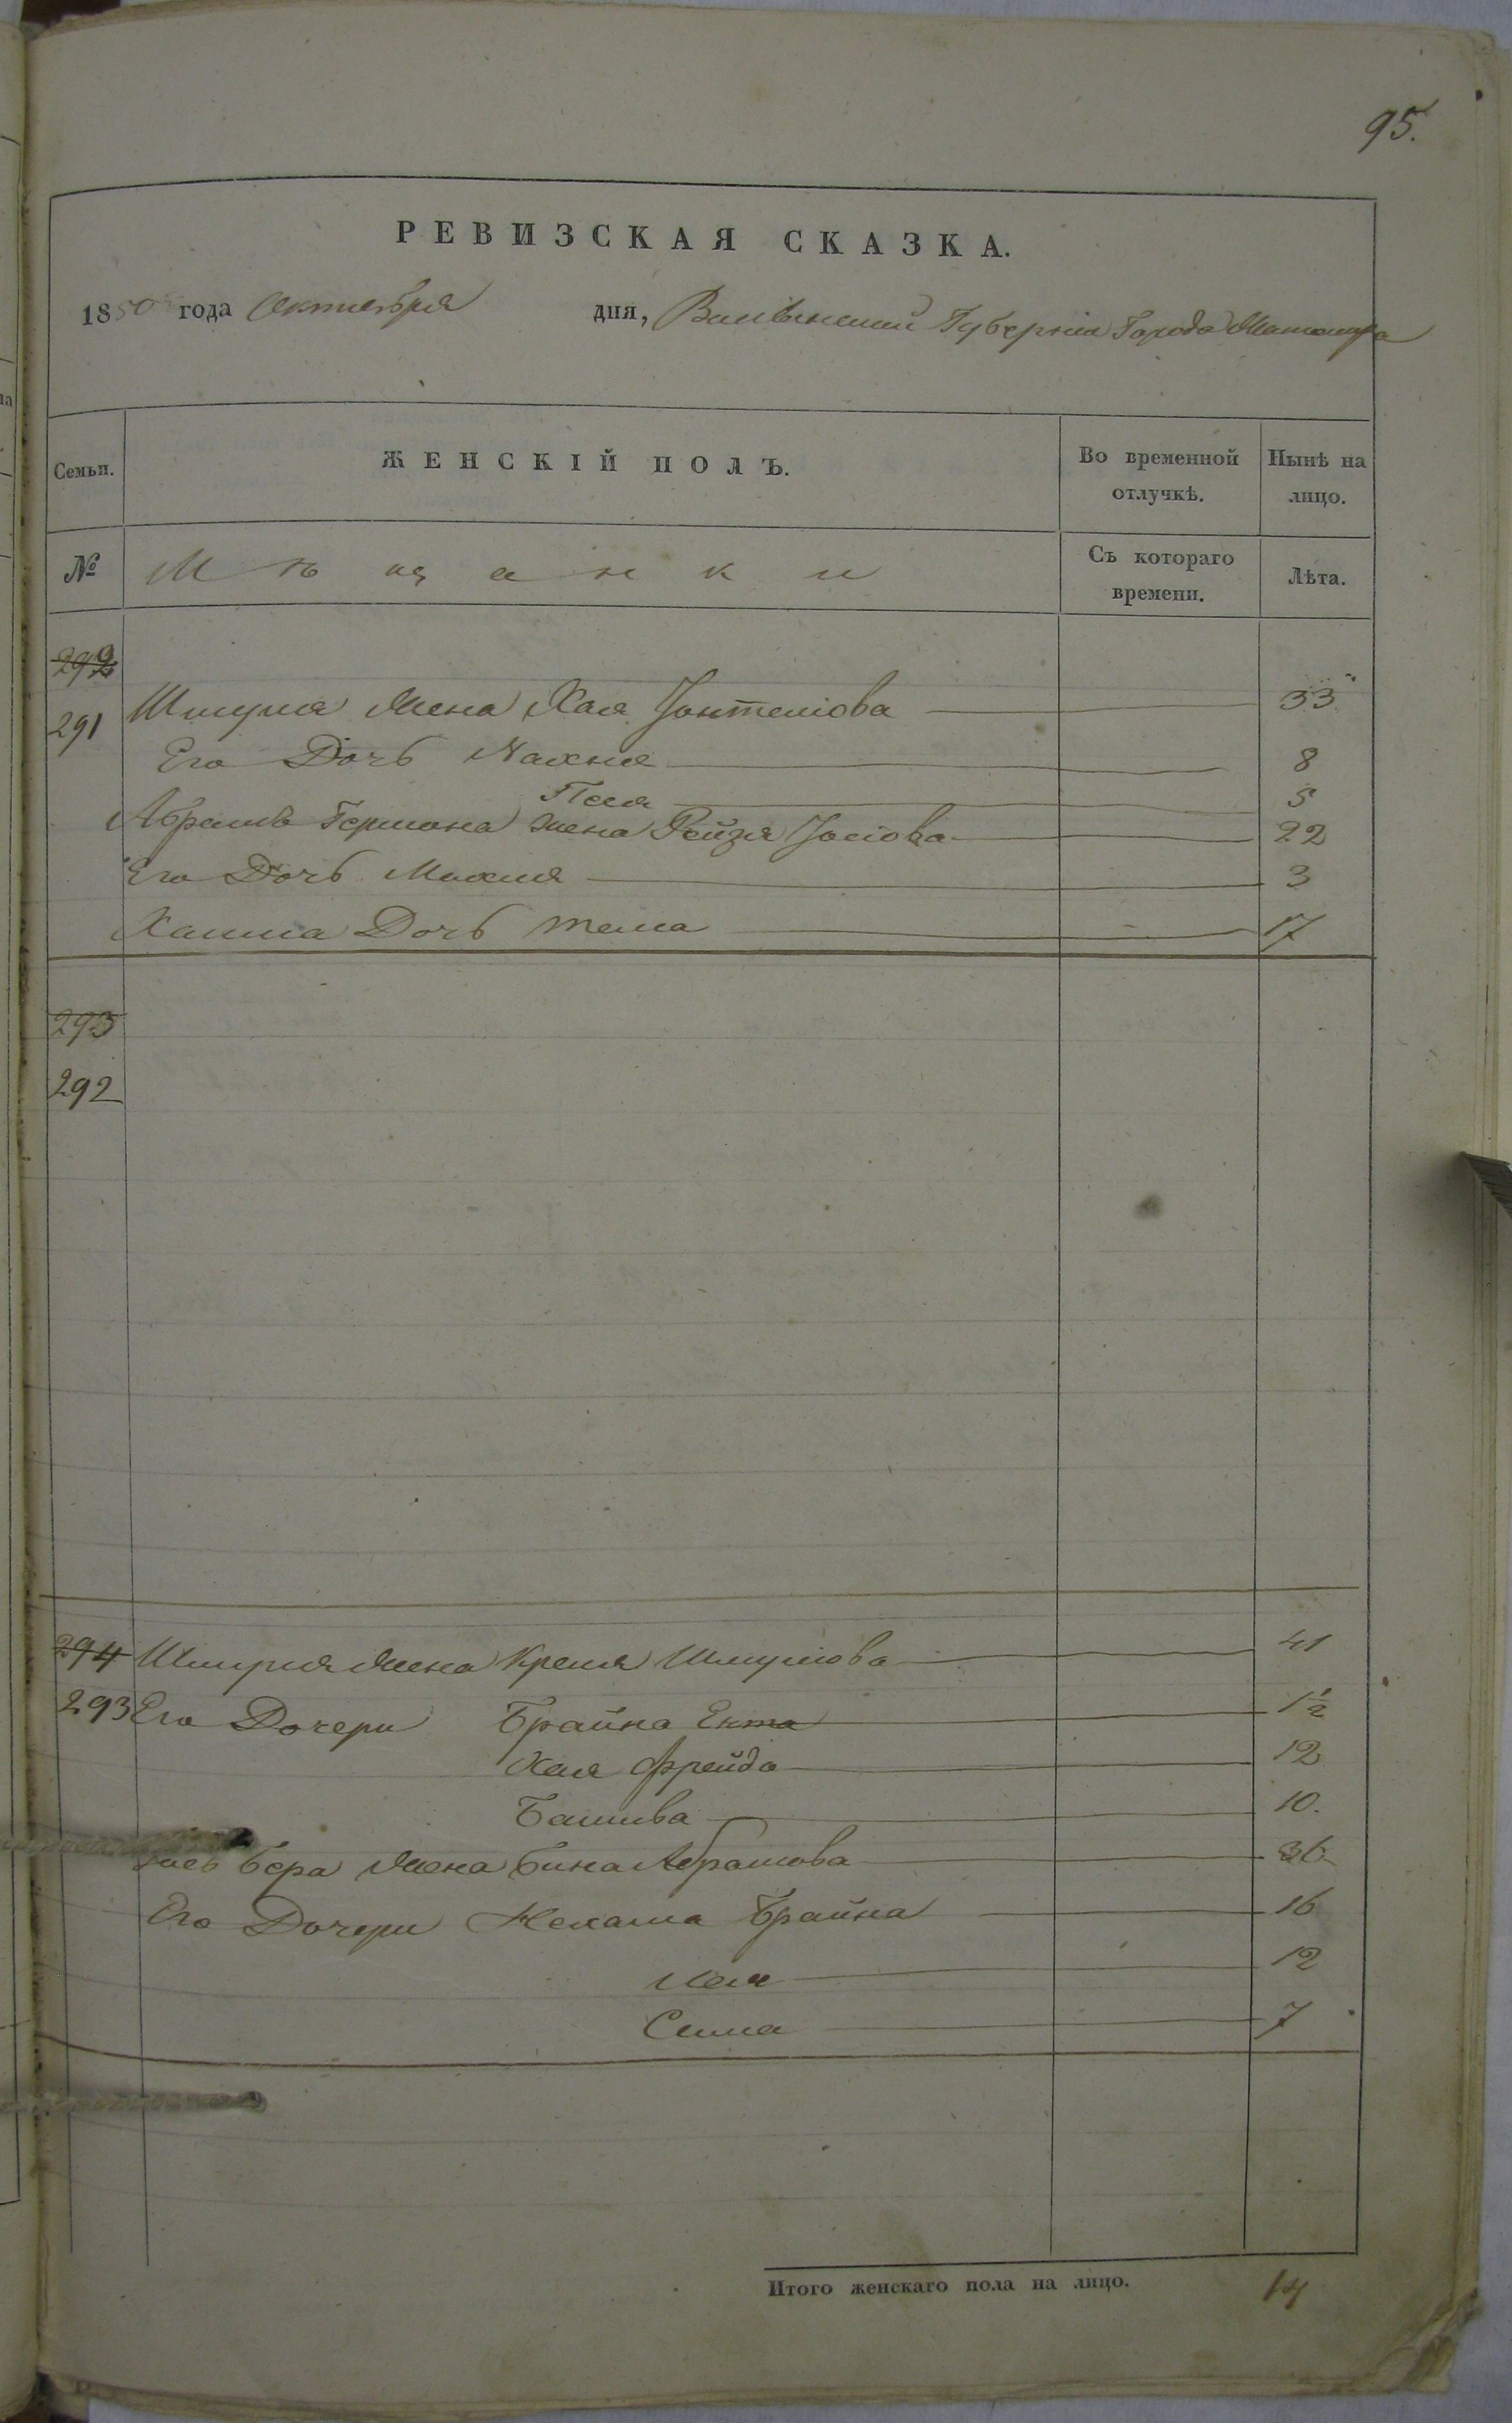 95.
РЕВИЗСКАЯ СКАЗКА.
1850 года Октября дня, Волынской Губерніи Города Житомира
Семьи. ЖЕНСКІЙ ПОЛЪ. Во временной отлучкѣ. Нынѣ на лицо.
№ Мѣщанки Съ котораго времени. Лѣта.
292
291 Шмуля Жена Хая 33
Его Дочь Махля 8
Песя 5
Абрамъ Гершона жена Рейзя Іосіова 22
Его Дочь Махля 3
Хаима Дочь тема 17
293
292
294 Шмуля Жена Крейня Шмуліова 41
293 Его Дочери Брайна Ента 1½
Хая Фрейда 12
Башива 10.
Бера Жена Бина Абрамова 36
Его Дочери Нехама Брайна 16
Лея 12
Сима 7
Итого женскаго пола на лицо. 14